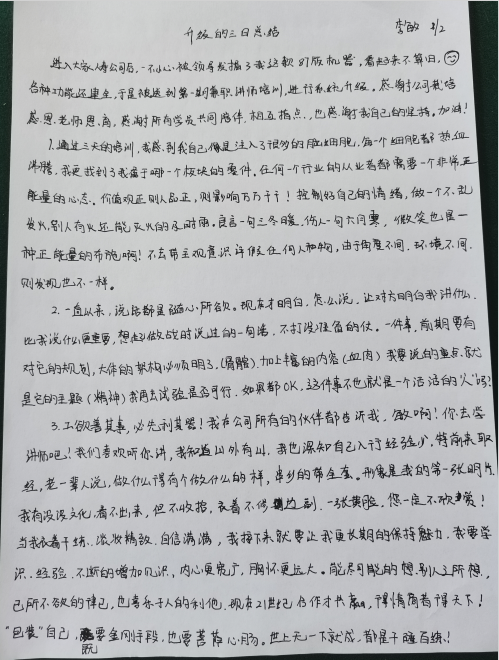 升级的三日总结
李敏 2/2
进入大家人寿公司后,一不小心被领导发掘了我这款81版机器,看起来不算旧,
各种功能还健全,于是被送到第一期兼职讲师培训,进行系统升级。感谢公司栽培
感恩老师恩高,感谢所有学员共同陪伴,相互指点,也感谢我自己的坚持。加油!
1.通过三天的培训,我感到我自己像是注入了很多的脏细胞,每一个细胞都热血
沸腾,我更找到了我属于哪一个板块的零件,任何一个行业的从业者都需要一个非常正
能量的心态。价值观正则人品正,则影响万万千千!控制好自己的情绪,做一个不乱
发火,别人有火还能灭火的及时雨。良言一句三冬暖,伤人一句六月寒,微笑也是一
种正能量的布施啊!不去带主观意识评价任何人和物,由于角度不同,环境不同,
则发现也不一样。
2.一直以来,说话都是随心所欲。现在才明白,怎么说,让对方明白我讲什么,
比我说什么更重要,想起做战时说过的一句话,不打没准备的仗。一件事,前期要有
对它的规划,大体的架构必须明了,(骨骼)加上丰富的内容(血肉)我要说的重点,就
是它的主题(精神)我再去试验是否可行,如果都OK,这件事不也就是一个活活的“人”吗?
3.工欲善其事,必先利其器!我在公司所有的伙伴都告诉我,敏啊!你去当
讲师吧!我们喜欢听你讲,我知道山外有山,我也深知自己入行经验少,特前来取
经,老一辈人说,做什么得有个做什么的样,牵乡的带全套。形象是我的第一张明片
我有没没文化,看不出来,但不收拾,衣着不修边副,一张黄脸,您一定不欣赏!
当我衣着干练,淡妆精致,自信满满,我接下来就要让我更长期的保持魅力,我要学
识、经验,不断的增加见识,内心更宽广,胸怀更远大。能尽可能的想别人之所想,
己所不欲的律己,也喜乐于人的利他,现在21世纪合作才共赢,得情商者得天下!
“包装”自己,既要金刚手段,也要菩萨心肠。世上无一下就成,都是千锤百练!